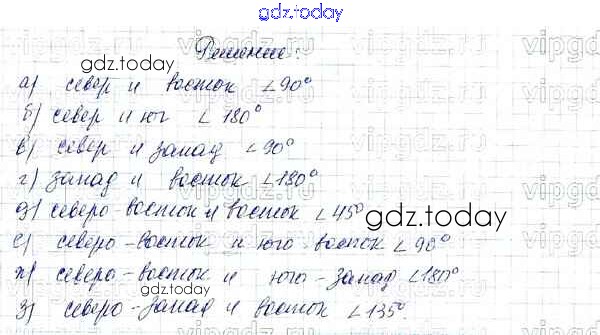 gdz.today
Решение:
gdz.today
а) север и восток ∠90°
б) север и юг ∠180°
в) север и запад ∠90°
г) запад и восток ∠180°
д) северо-восток и восток ∠45°
gdz.today
е) северо-восток и юго-восток ∠90°
ж) северо-восток и юго-запад ∠180°
gdz.today
з) северо-запад и восток ∠135°.
vipgdz
vipgdz
vipgdz
vipgdz
vipgdz